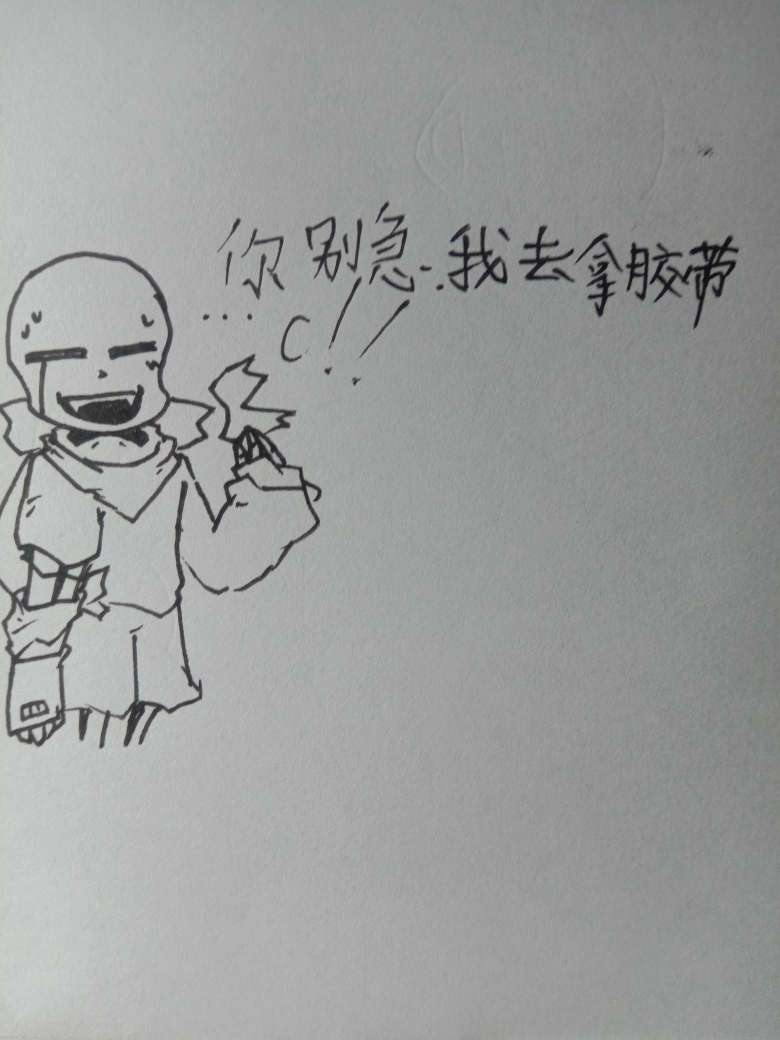 你别急...我去拿胶带
... C !!